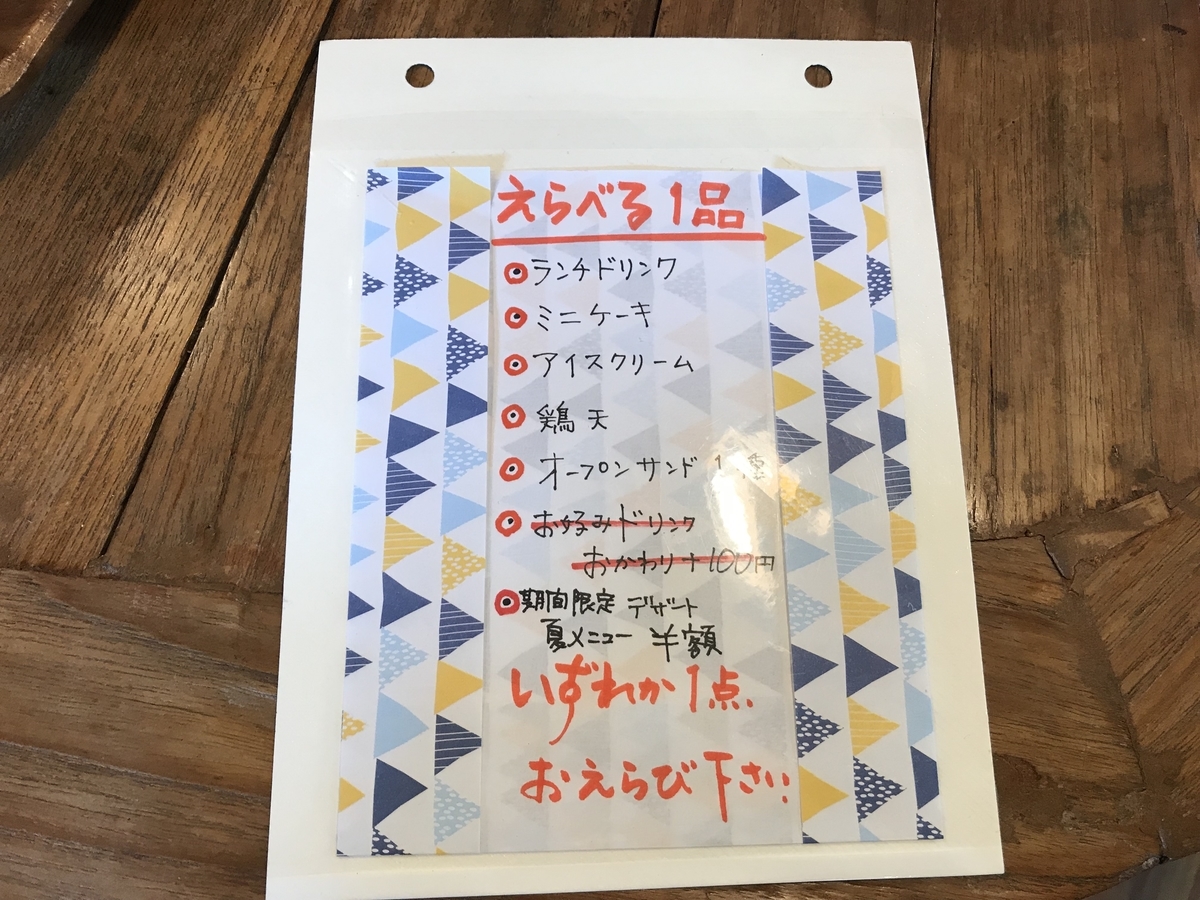 えらべる1品
ランチドリンク
ミニケーキ
アイスクリーム
鶏天
オープンサンド 1種
お好みドリンク
おかわり+100円
期間限定 デザート
夏メニュー 半額
いずれか1点、
おえらび下さい